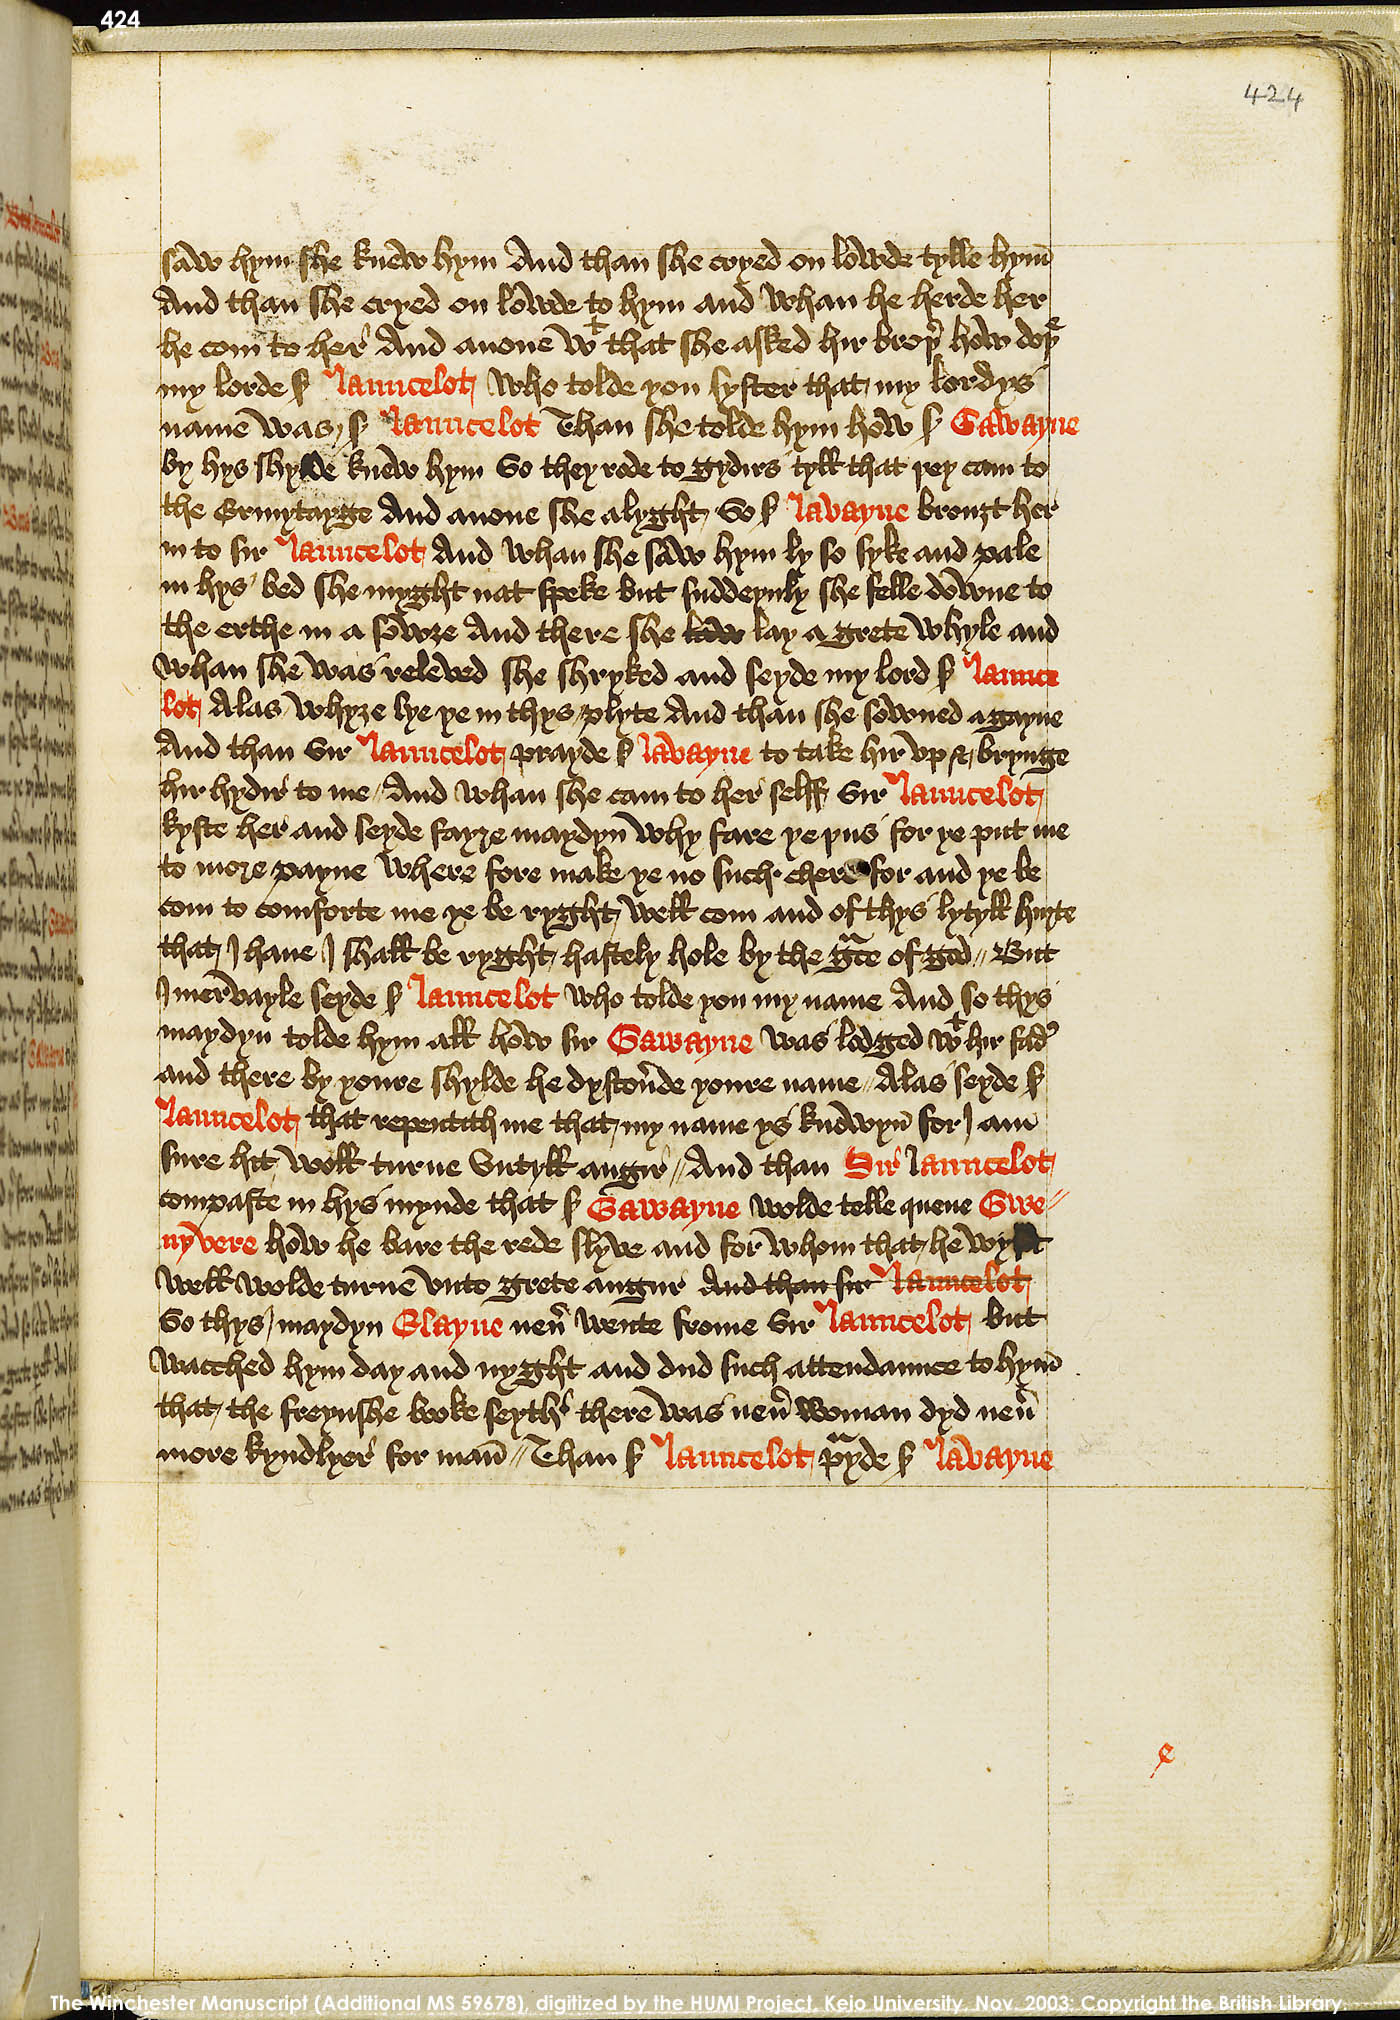 424
424
saw hym she knew hym And than she cryed on lowde tylle hym̄
And than she cryed on lowde to hym and whan he herde her
he com to her And anone wᵗ that she asked hir broþ̉ how doþᵉ
my lorde sꝭ Launcelot who tolde you syster that my lordys
name was sꝭ Launcelot Than she tolde hym how sꝭ Gawayne
by hys shylde knew hym So they rode to gydirs tyll that þey cam to
the Ermytayge And anone she alyght So sꝭ Lavayne brouȝt her
in to sir Launcelot And whan she saw hym ly so syke and pale
in hys bed she myght nat speke but suddeynly she felle downe to
the erthe in a sowȝe And there she lay a grete whyle and
whan she was releved she shryked and seyde my lord sꝭ Launce
lot Alas whyȝe lye ye in thys plyte And than she sowned agayne
And than Sir Launcelot prayde sꝭ Lavayne to take hir vp & brynge
hir hydir to me // And whan she cam to her selff Sir Launcelot
kyste her and seyde fayre maydyn why fare ye þus for ye put me
to more payne where fore make ye no such chere for and ye be
com to comforte me ye be ryght well com and of thys lytyll hurte
that I haue I shall be ryght hastely hole by the gᵃce of god // But
I mervayle seyde sꝭ Launcelot who tolde you my name And so thys
maydyn tolde hym all how sir Gawayne was lodged wᵗ hir fad̉
and there by youre shylde he dyscou̅de youre name // Alas seyde sꝭ
Launcelot that repentith me that my name ys knowyn̄ for I am
sure hit woll turne Untyll angir // And than Sir Launcelot
compaste in hys mynde that sꝭ Gawayne wolde telle quene Gwe//
nyvere how he bare the rede slyve and for whom that he wyst
well wolde turne vnto grete angur And than sir Launcelot
So thys maydyn Elayne neu̅ wente frome Sir Launcelot but
wacched hym day and nyght and dud such attendaunce to hym̄
that the freynshe booke seyth there was neu̅ woman dyd neu̅
more kyndlyer for man̄ // Than sꝭ Launcelot pᵃyde sꝭ Lavayne
e
The Winchester Manuscript (Additional MS 59678), digitized by the HUMI Project, Keio University, Nov. 2003; Copyright the British Library.